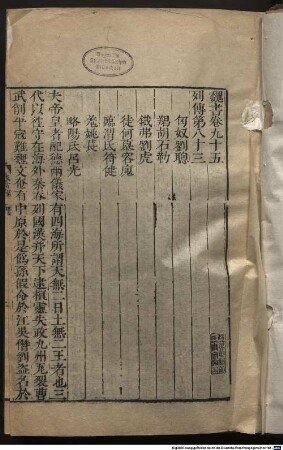 魏書卷九十五
列傳第八十三
匈奴劉聰
羯胡石勒
鐵弗劉虎
徒何慕容廆
臨渭氐苻健
羌姚萇
略陽氐呂光
夫帝皇者配德兩儀家有四海所謂天無二日土無二王者也三
代以往守在海外秦吞列國漢并天下逮桓靈失政九州瓦裂曹
武削平寇難魏文奄有中原於是偽孫假命於江吳僭劉盜名於